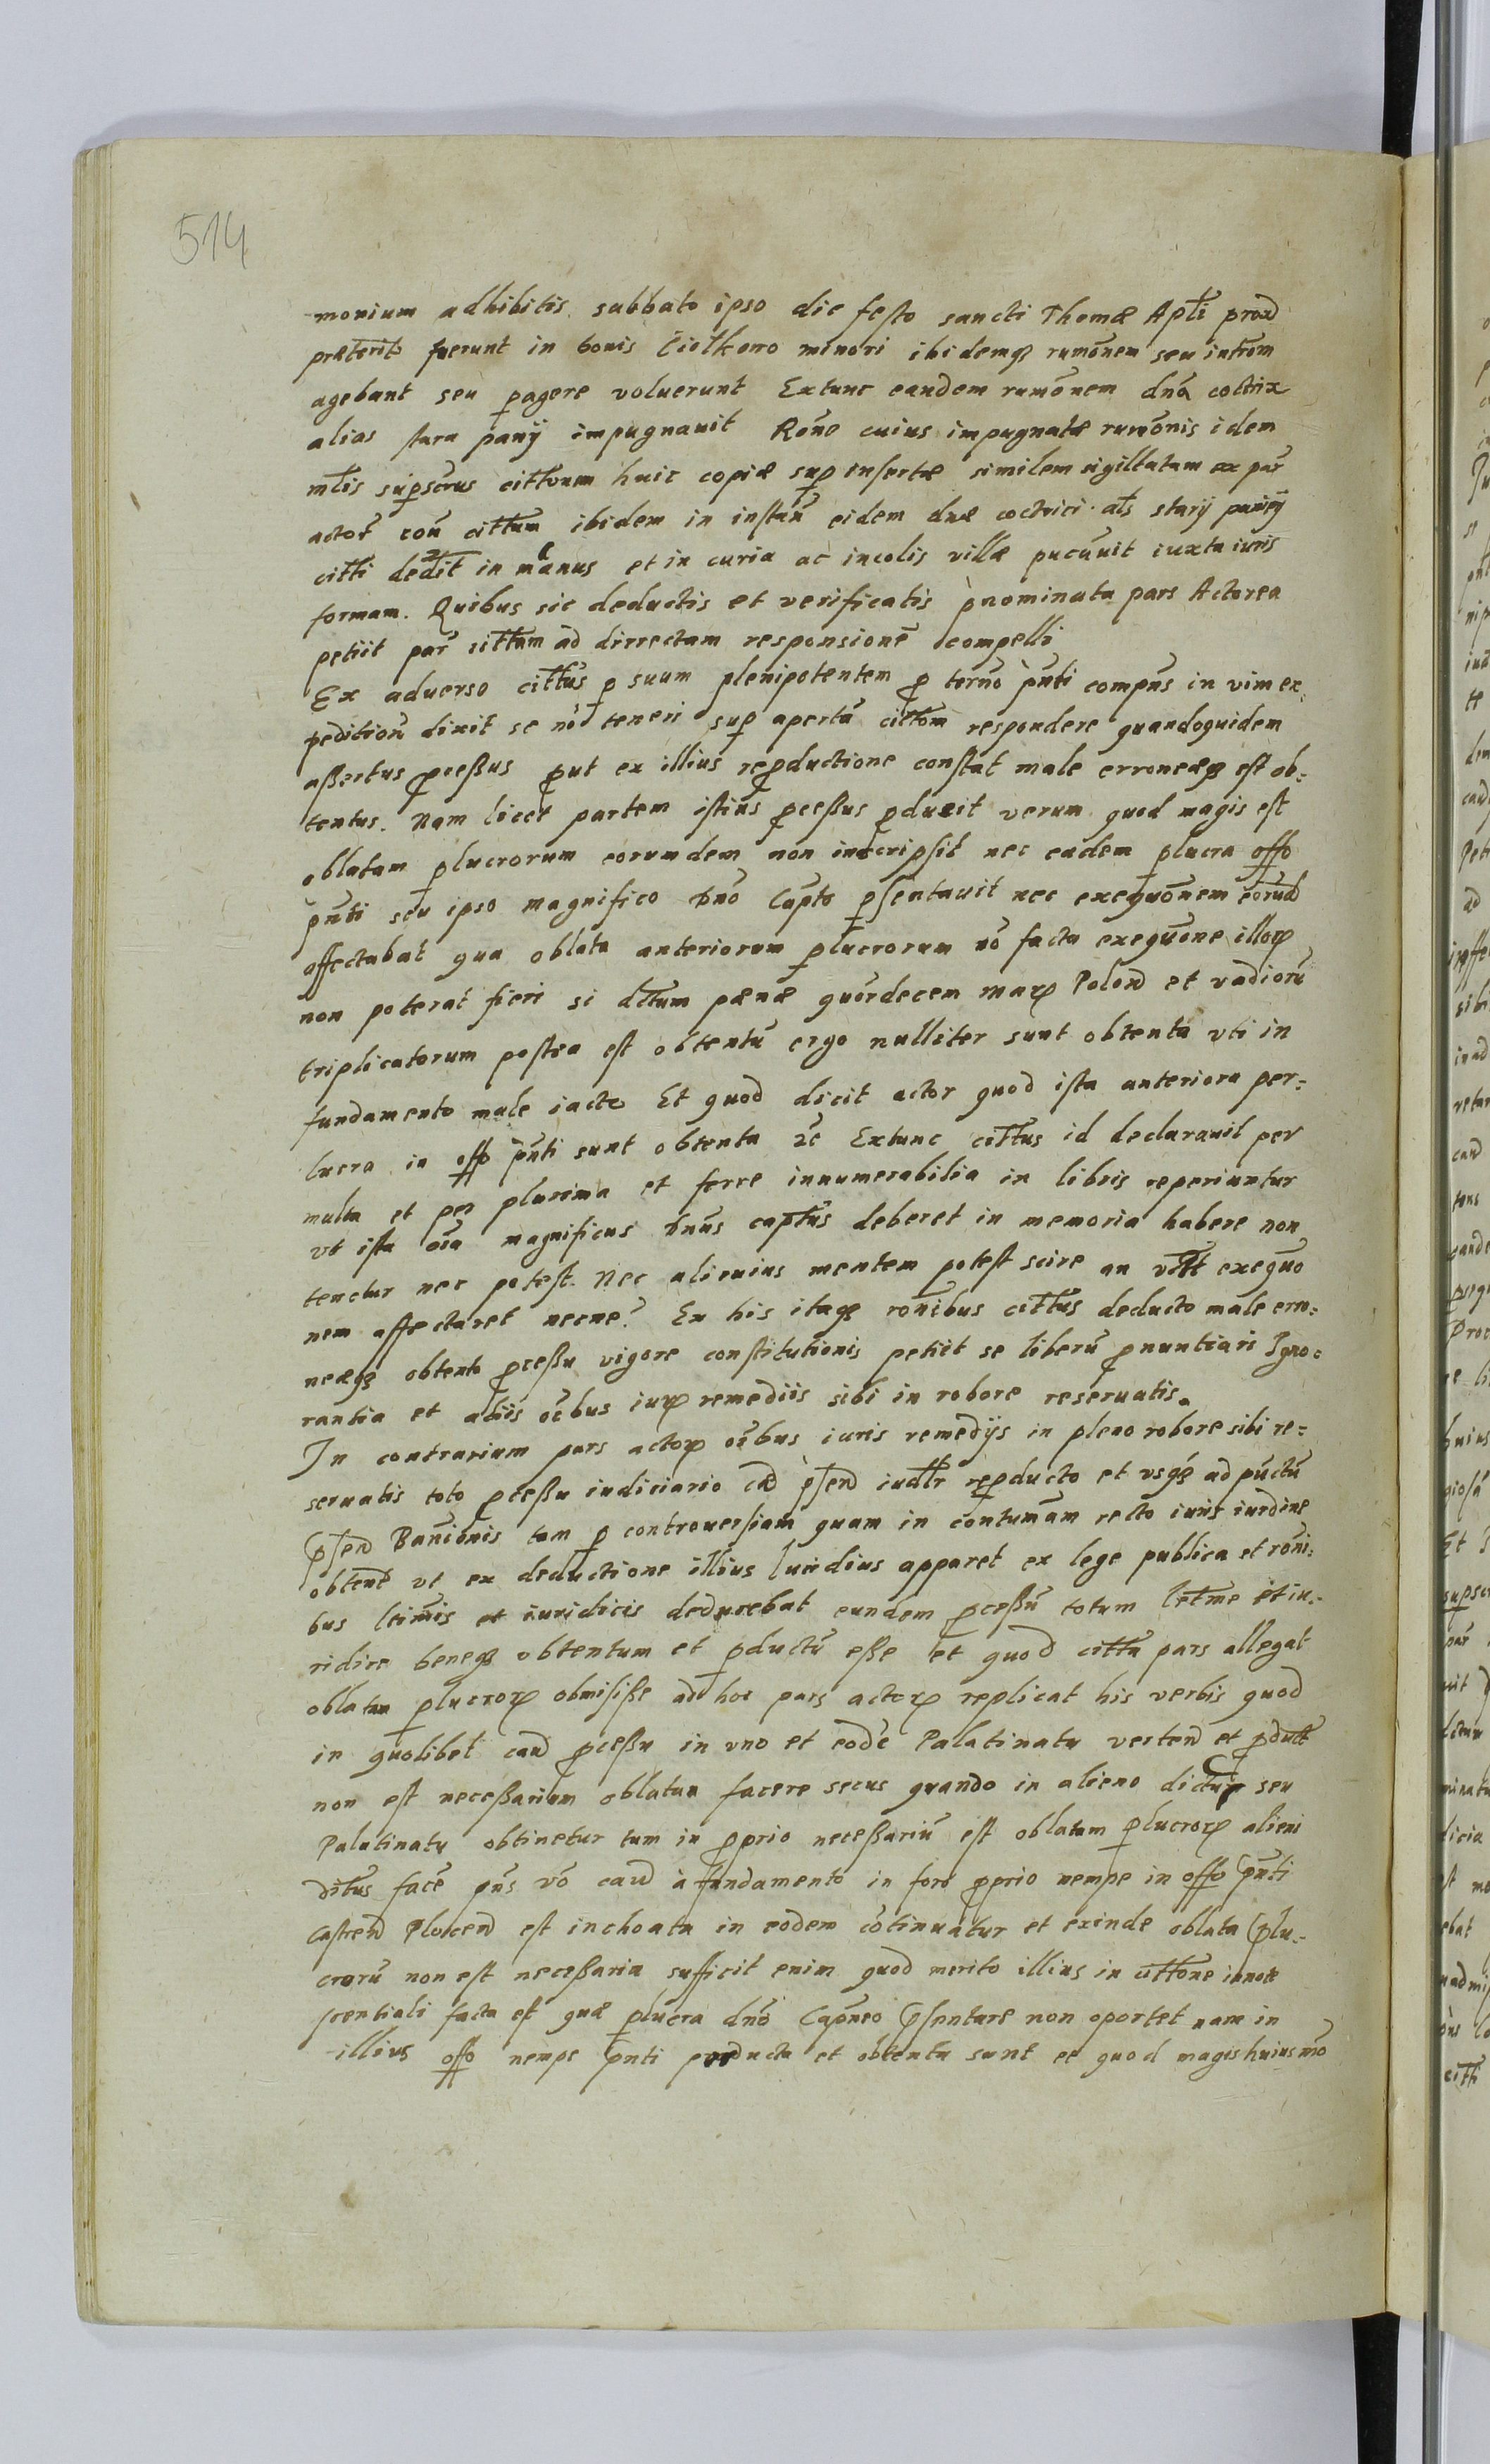 514
monium adhibitis sabbato ipso die festo sancti Thomæ Aptli proxd
præterito fuerunt in bonis Ciolkowo minori ibidemq rumōnem seu intrōm
agebant seu pagere voluerunt Extunc eandem rumōnem dnā coctrix
alias stara panij impugnauit Rōne cuius impugnatæ rumōnis idem
mtlis supscrus cittonem huic copiæ sup insertæ similem sigillatam ex par
actor cou cittam ibidem in instan eidem dnæ coctrici als starij panieij
citti dedit in manus et in curia ac incolis villæ pucauit iuxta iuris
formam. Quibus sic deductis et verificatis pnominata pars Actorea
petiit par cittam ad dirrectam responsionē compelli
Ex aduerso cittus p suum plenipotentem p termo pnti compns in vim ex
peditiou dixit se nō teneri sup apertā cittom respondere quandoquidem
assertus pcessus put ex illius repductione constat male erroneæq est ob=
tentus. Nam licet partem istius pcessus pduxit verum quod magis est
oblatam plucrorum eorumdem non inscripsit nec eadem plucra offo
pnti seu ipso magnifico dno Capto psentauit nec exequōnem eorud
affectabat qua oblata anteriorum plucrorum nō facta exequōne illor
non poterat fieri si dttum pænæ quordecem marx Polond et vadiorū
triplicatorum postea est obtentū ergo nulliter sunt obtenta vti in
fundamento male iacto Et quod dicit actor quod ista anteriora per=
lucra in offo pnti sunt obtenta zc Extunc cittus id declarauit per
multa et per plurima et ferre innumerabilia in libris reperiuntur
vt ista oīa magnificus dnus captus deberet in memoria habere non
tenetur nec potest. Nec alicuius mentem potest scire an vltt exequo
nem affectaret necne? Ex his itaq ronibus cittus deducto male erro=
neæq obtento pcessu vigore constitutionis petiit se liberū pnuntiari Igno=
rantia et aliis oībus iurx remediis sibi in robore reseruatis.
In contrarium pars actorx oībus iuris remedijs in pleno robore sibi re=
seruatis toto pcessu iudiciario cā psend iudltr repducto et vsq ad pūctū
psend Banionis tam p controuersiam quam in contumam recto iuris iurdine
obtent vt ex deductione illius lucidius apparet ex lege publica et roni=
bus ltimis et iuridicis deducebat eundem pcessū totum letme et iu=
ridice beneq obtentum et pductū esse et quod citta pars allegat
oblatam plucrorx obmisisse ad hoc pars actorx replicat his verbis quod
in quolibet caud pcessu in vno et eodē Palatinatu vertend et pductt
non est necessarium oblatam facere secus quando in alieno dictu seu
Palatinatu obtinetur tum in pprio necessariū est oblatam plucrorx alieni
ditus facē pns vō caud à fundamento in foro pprio nempe in offo pnti
Castrend Plocend est inchoata in eodem cōtinuatur et exinde oblata plu=
crorū non est necessaria sufficit enim quod merito illius in cittone innote
scentiali facta est quæ plucra dno Capneo psentare non oportet nam in
illius offo nempe pnti producta et obtenta sunt et quod magis huiusmo